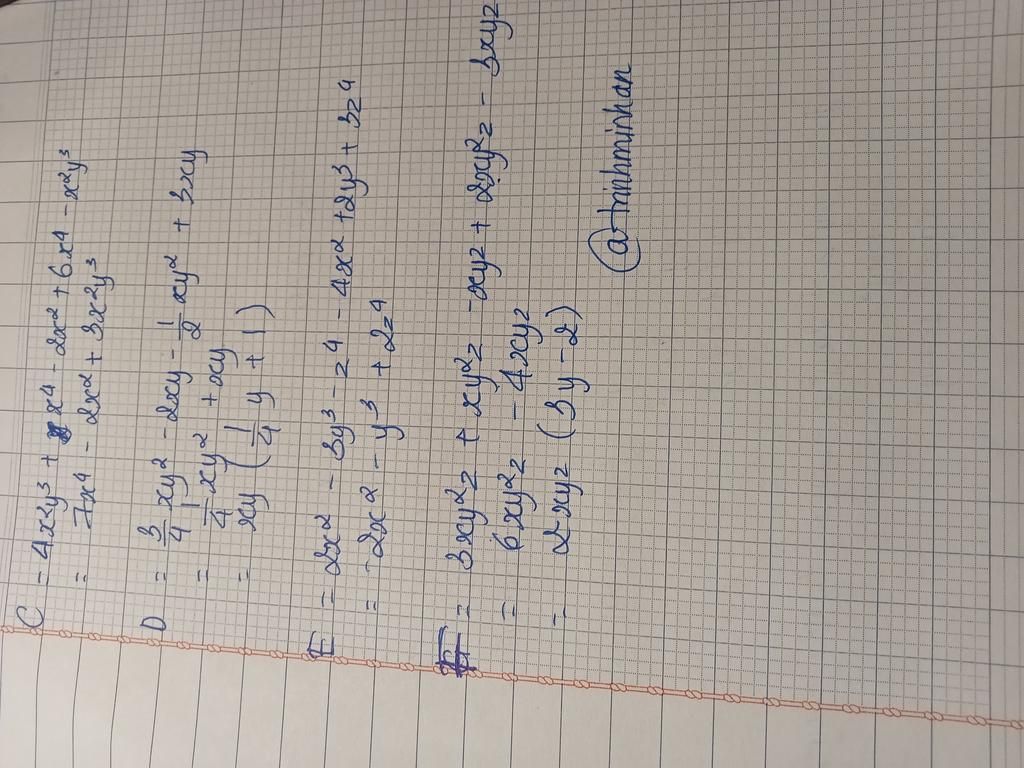 C = 4x²y³ + x⁴ - 2x² + 6x⁴ - x²y³
= 7x⁴ - 2x² + 3x²y³
D = 3/4 xy² - 2xy - 1/2 xy² + 3xy
= 1/4 xy² + xy
= xy (1/4 y + 1)
E = 2x² - 3y³ - z⁴ - 4x² + 2y³ + 3z⁴
= -2x² - y³ + 2z⁴
= 3xy²z + xy²z - xyz + 2xy²z - 3xyz
= 6xy²z - 4xyz
= 2xyz (3y - 2)
@trinhminhan